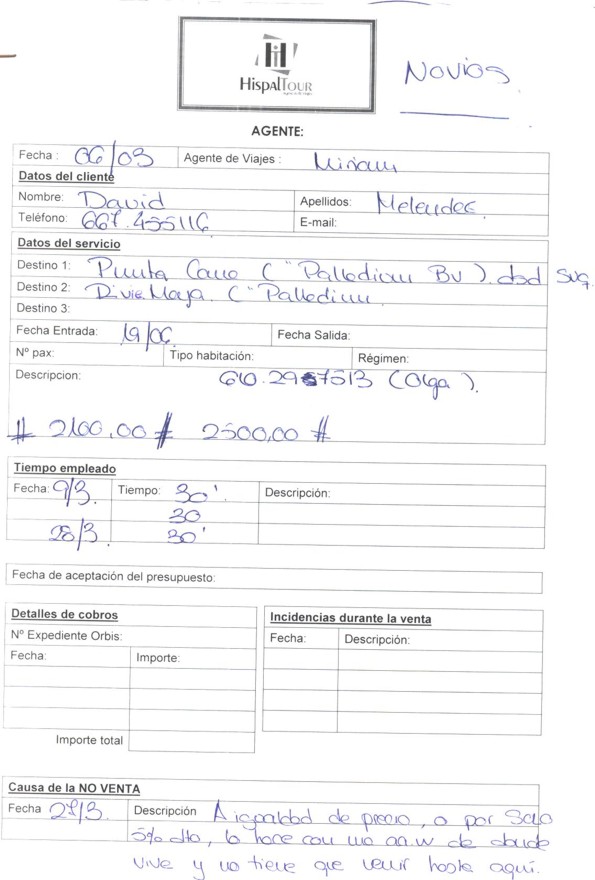 HI
HISPALTOUR
Novios
AGENTE:
Fecha: 06/03 Agente de Viajes: Miriam
Datos del cliente
Nombre: David Apellidos: Melendez
Teléfono: 667.455116 E-mail:
Datos del servicio
Destino 1: Punta Cana ("Palladium Bv). dsd SVQ.
Destino 2: Rivie. Maya. ("Palladium
Destino 3:
Fecha Entrada: 19/06 Fecha Salida:
Nº pax: Tipo habitación: Régimen:
Descripcion: (Olga).
# 2100,00 # 2500,00 #
Tiempo empleado
Fecha: 9/3 Tiempo: 30'. Descripción:
30
28/3 30'
Fecha de aceptación del presupuesto:
Detalles de cobros
Incidencias durante la venta
Nº Expediente Orbis:
Fecha: Descripción:
Fecha: Importe:
Importe total
Causa de la NO VENTA
Fecha Descripción A igualdad de precio, o por solo
5% dto, lo hace con de donde
vive y no tiene que venir hasta aquí.